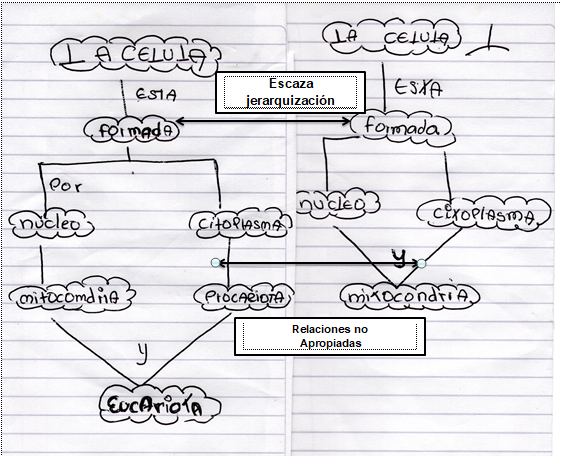 LA CELULA
ESTA
formada
Por
NUCLEO
CITOPLASMA
mitocomdriA
PROCARIOTA
y
EUCARIOTA
Escaza
jerarquización
Relaciones no
Apropiadas
LA CELULA
ESTA
formada
NUCLEO
CITOPLASMA
y
mitocondriA